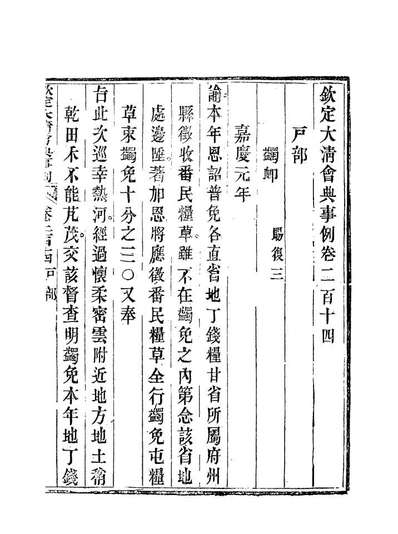 欽定大清會典事例卷二百十四
戶部
蠲卹 賜復三
嘉慶元年
諭本年恩詔普免各直省地丁錢糧甘省所屬府州
縣徵收番民糧草雖不在蠲免之內第念該省地
處邊陲著加恩將應徵番民糧草全行蠲免屯糧
草束蠲免十分之三○又奉
旨此次巡幸熱河經過懷柔密雲附近地方地土稍
乾田禾不能芃茂交該督查明蠲免本年地丁錢
欽定大清會典事例 卷二百十四 戶部